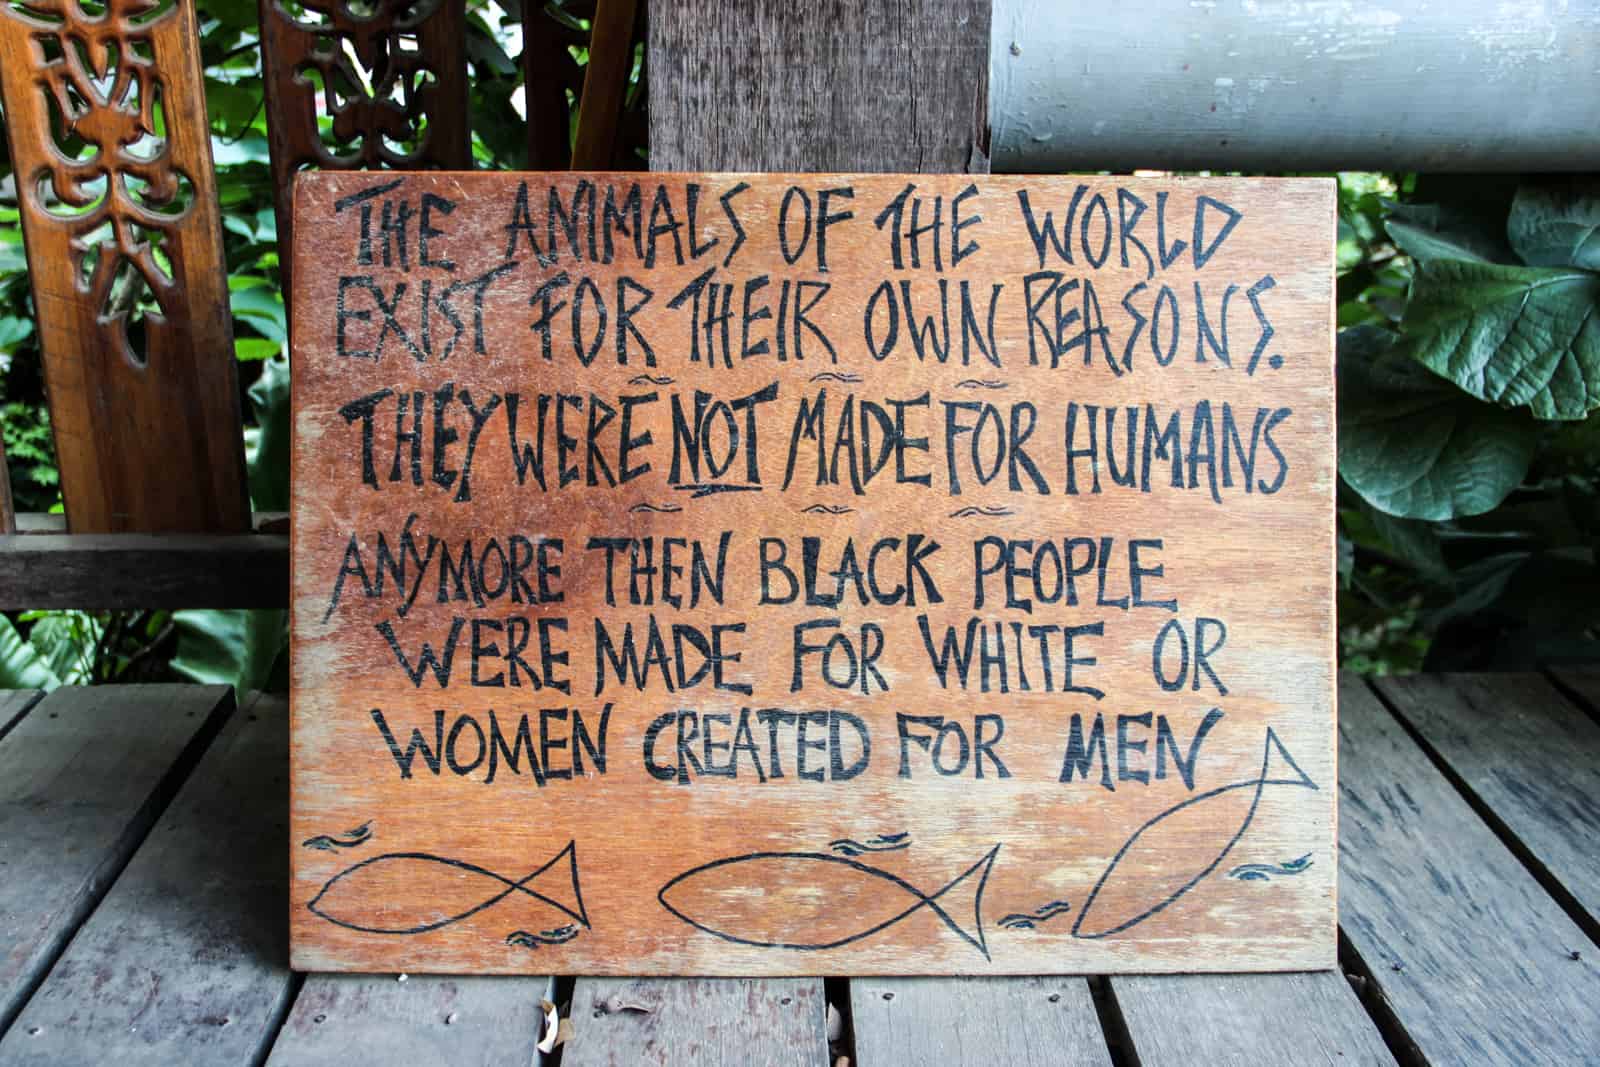 THE ANIMALS OF THE WORLD
EXIST FOR THEIR OWN REASONS.
THEY WERE NOT MADE FOR HUMANS
ANYMORE THEN BLACK PEOPLE
WERE MADE FOR WHITE OR
WOMEN CREATED FOR MEN